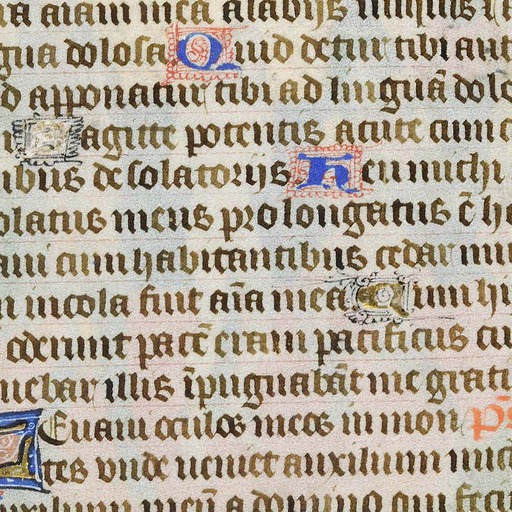 ra aīam mea a labijs iniquis
gua dolosa Quid detur tibi aut
d apponatur tibi ad linguā dolo
Sagitte potentis acute cum c
ibus desolatorijs Heu michi
olatus meus prolongatus ē h
aui cum habitantibus cedar mu
m incola fuit aīa mea Cum hi
oderunt pacē eram pacificus cu
uebar illis īpugnabāt me grati
Leuaui oculos meos in mon ps
tes vnde ueniet auxilium mic
uxilium meū a domino qui feci